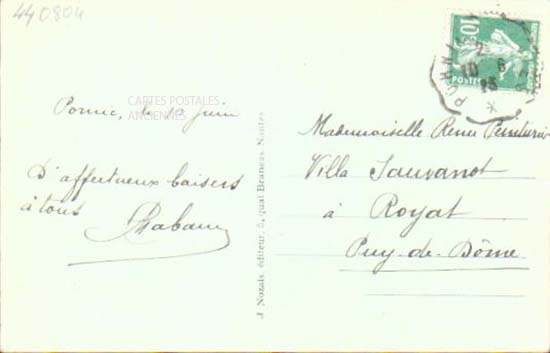 440804
CARTES POSTALES
ANCIENNES
Pornic, le 10 Juin
D'affectueux baisers
à tous
J. Nozais éditeur, 5, quai Brancas, Nantes
10c
POSTES
2
10 6
15
Mademoiselle Renée
Villa Sauvanot
à Royat
Puy-de-Dôme